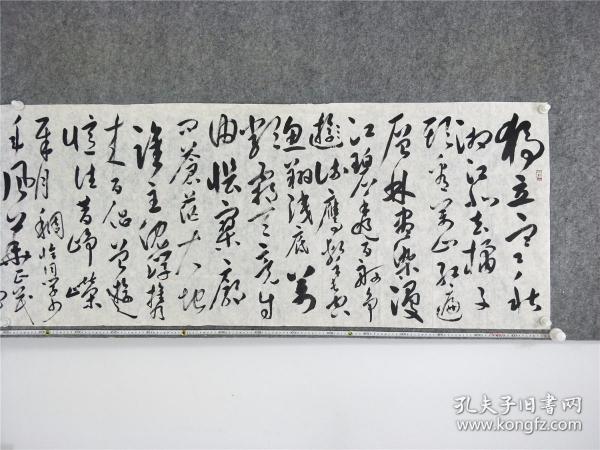 独立寒秋
湘江北去橘子
头看万山红遍
层林尽染漫
江碧透百舸争
游鹰击长空
鱼翔浅底万
类霜天竞自
由怅寥廓
问苍茫大地
谁主沉浮携
来百侣曾游
忆往昔峥嵘
岁月稠恰同学少
年风华正茂
孔夫子旧书网
www.kongfz.com